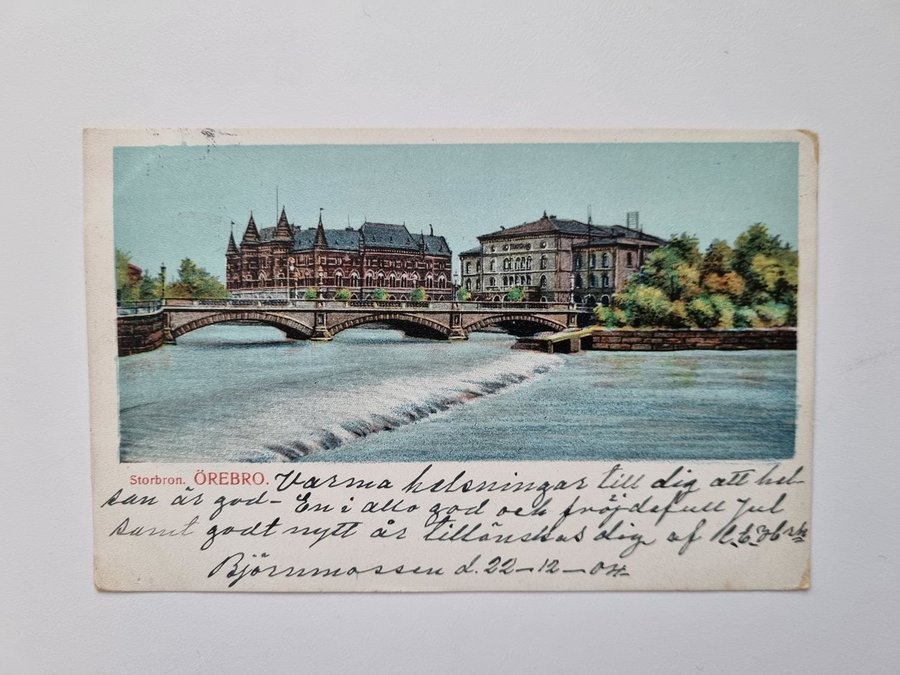 Storbron. ÖREBRO. Varma helsningar till dig att hel-
san är god – En i allo god och fröjdefull Jul
samt godt nytt år tillönskas dig af
Björnmossen d. 22–12–04